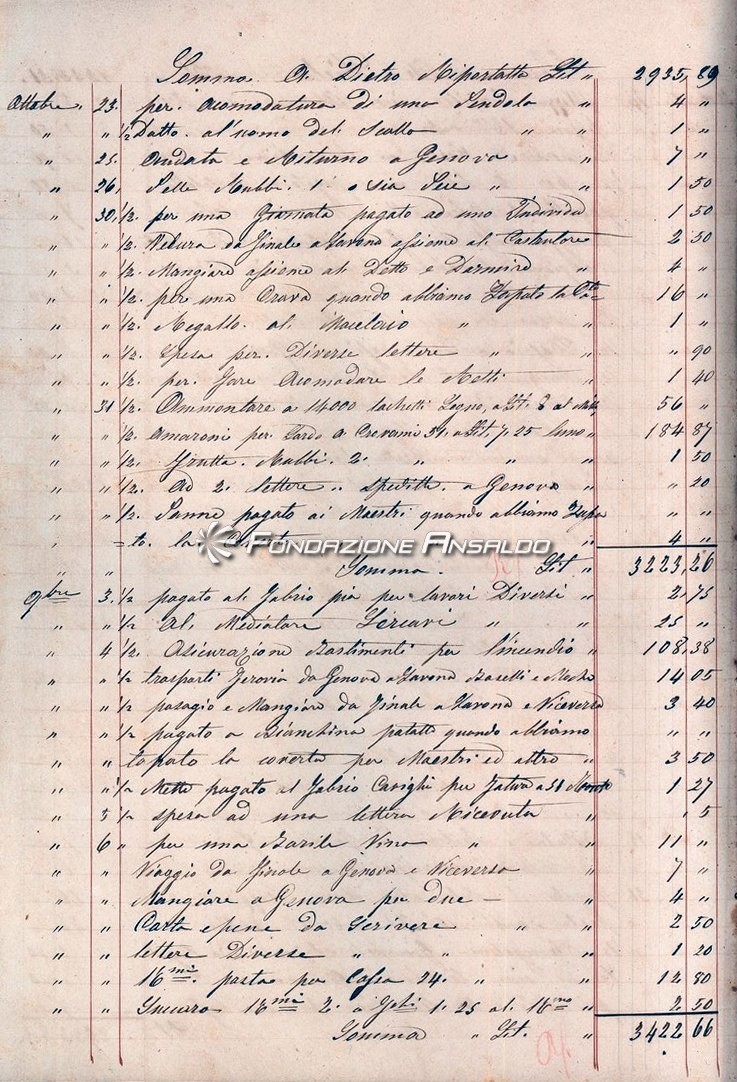 Somma A Dietro Riportatta Lit " 2935, 89
Ottobre, 23. per Acomodatura di una Pendola " 4 "
" " 1/2 Datto al'uomo del Scallo " " " 1 "
" 25. Andata e Ritorno a Genova " 7 "
" 26, Pelle Rubbi. 1 o sia " " 1 50
" 30, 1/2. per una Giornata pagato ad uno Individuo 1 50
" " 1/2. Vetura da Finale a Savona assieme al Costrutore 2 50
" " 1/2. Mangiare assieme al Detto e Dormire " 4 "
" " 1/2. per una Crava quando abbiamo la 16 "
" " 1/2. Regallo al Macelaio " " 1 "
" " 1/2. Spesa per Diverse lettere " " " 90
" " 1/2. per fare Acomodare le " 1 40
" 31 1/2. Ammontare a 14000 Legno, a Lit. 56 "
" " 1/2. a Lit, 7,25 " 184 87
" " 1/2. Frutta Rubbi. 2. " " " 1 50
" " 1/2. Ad 2. lettere " speditte a Genova " " 20
" " 1/2. pagato ai Maestri quando abbiamo
=to. la " 4 "
FONDAZIONE ANSALDO
" " Somma. Lit " 3223,26
9bre 3. 1/2 pagato al Fabrio per lavori Diversi " 2 75
" " 1/2 Al Mediatore " " 25 "
" 4 1/2. Asicurazione Bastimenti per l'incendio " 108,38
" " trasporti Ferovia da Genova a Savona 14 05
" " 1/2 pasagio e Mangiare da Finale a Savona e Viceversa 3 40
" " 1/2 pagato a Bianchina patatte quando abbiamo " "
" " topato la coverta per Maestri ed altro " 3 50
" " 1/2 pagato al Fabrio per 1 27
" 5 1/2 spesa ad una lettera Ricevuta " " 5
" 6 " per una Barile Vino " " 11 "
" " Viaggio da Finale a Genova e Viceversa " 7 "
" " Mangiare a Genova per due — " 4 "
" " Carta e pene da Scrivere " 2 50
" " lettere Diverse " " " 1 20
" " pasta per Cassa 24. " " 12 80
" " 2. a 1. 25 al " 2 50
Somma " Lit. " 3422 66